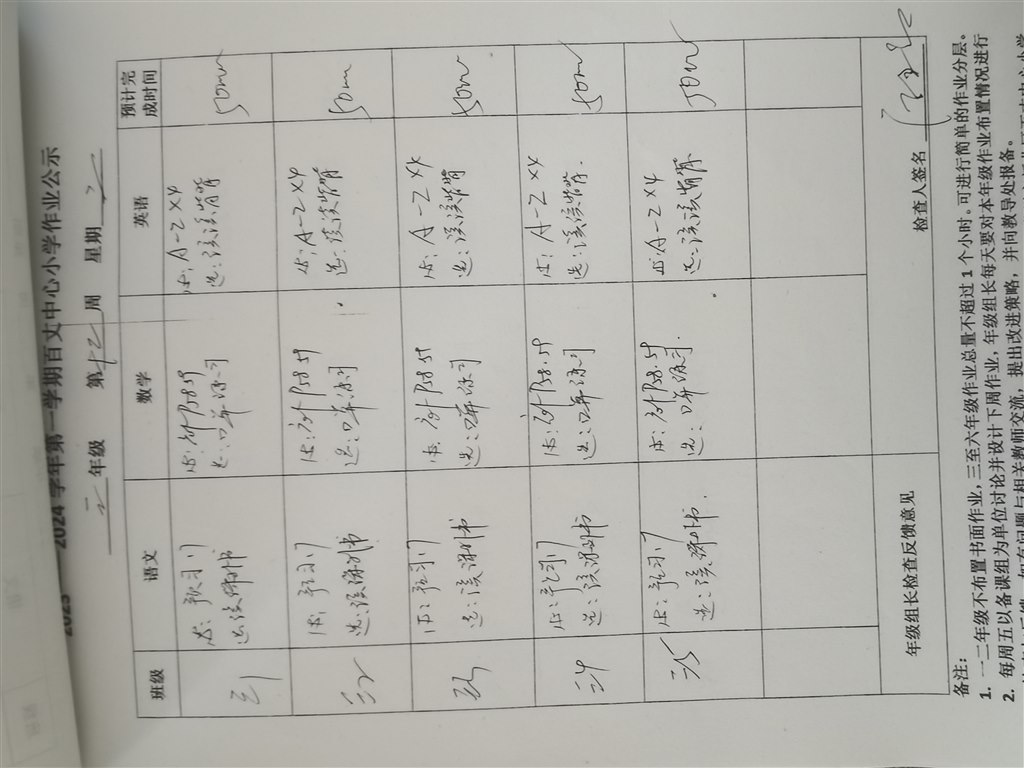 2024 学年第一学期百丈中心小学作业公示
三 年级 第十二周 星期 二
班级 语文 数学 英语 预计完成时间
三1
必：预习7
选：课外书
必：课外P58.59
选：口算练习
必：A-Z×4
选：读读背背
50m
三2
必：预习7
选：读课外书
必：课外P58.59
选：口算练习
必：A-Z×4
选：读读背背
50m
三3
必：预习7
选：读课外书
必：课外P58.59
选：口算练习
必：A-Z×4
选：读读背背
50m
三4
必：预习7
选：读课外书
必：课外P58.59
选：口算练习
必：A-Z×4
选：读读背背
50m
三5
必：预习7
选：读课外书.
必：课外P58.59
选：口算练习.
必：A-Z×4
选：读读背背
50m
年级组长检查反馈意见
检查人签名
备注：
1. 一二年级不布置书面作业，三至六年级作业总量不超过 1 个小时。可进行简单的作业分层。
2. 每周五以备课组为单位讨论并设计下周作业，年级组长每天要对本年级作业布置情况进行
如有问题与相关教师交流，提出改进策略，并向教导处报备。